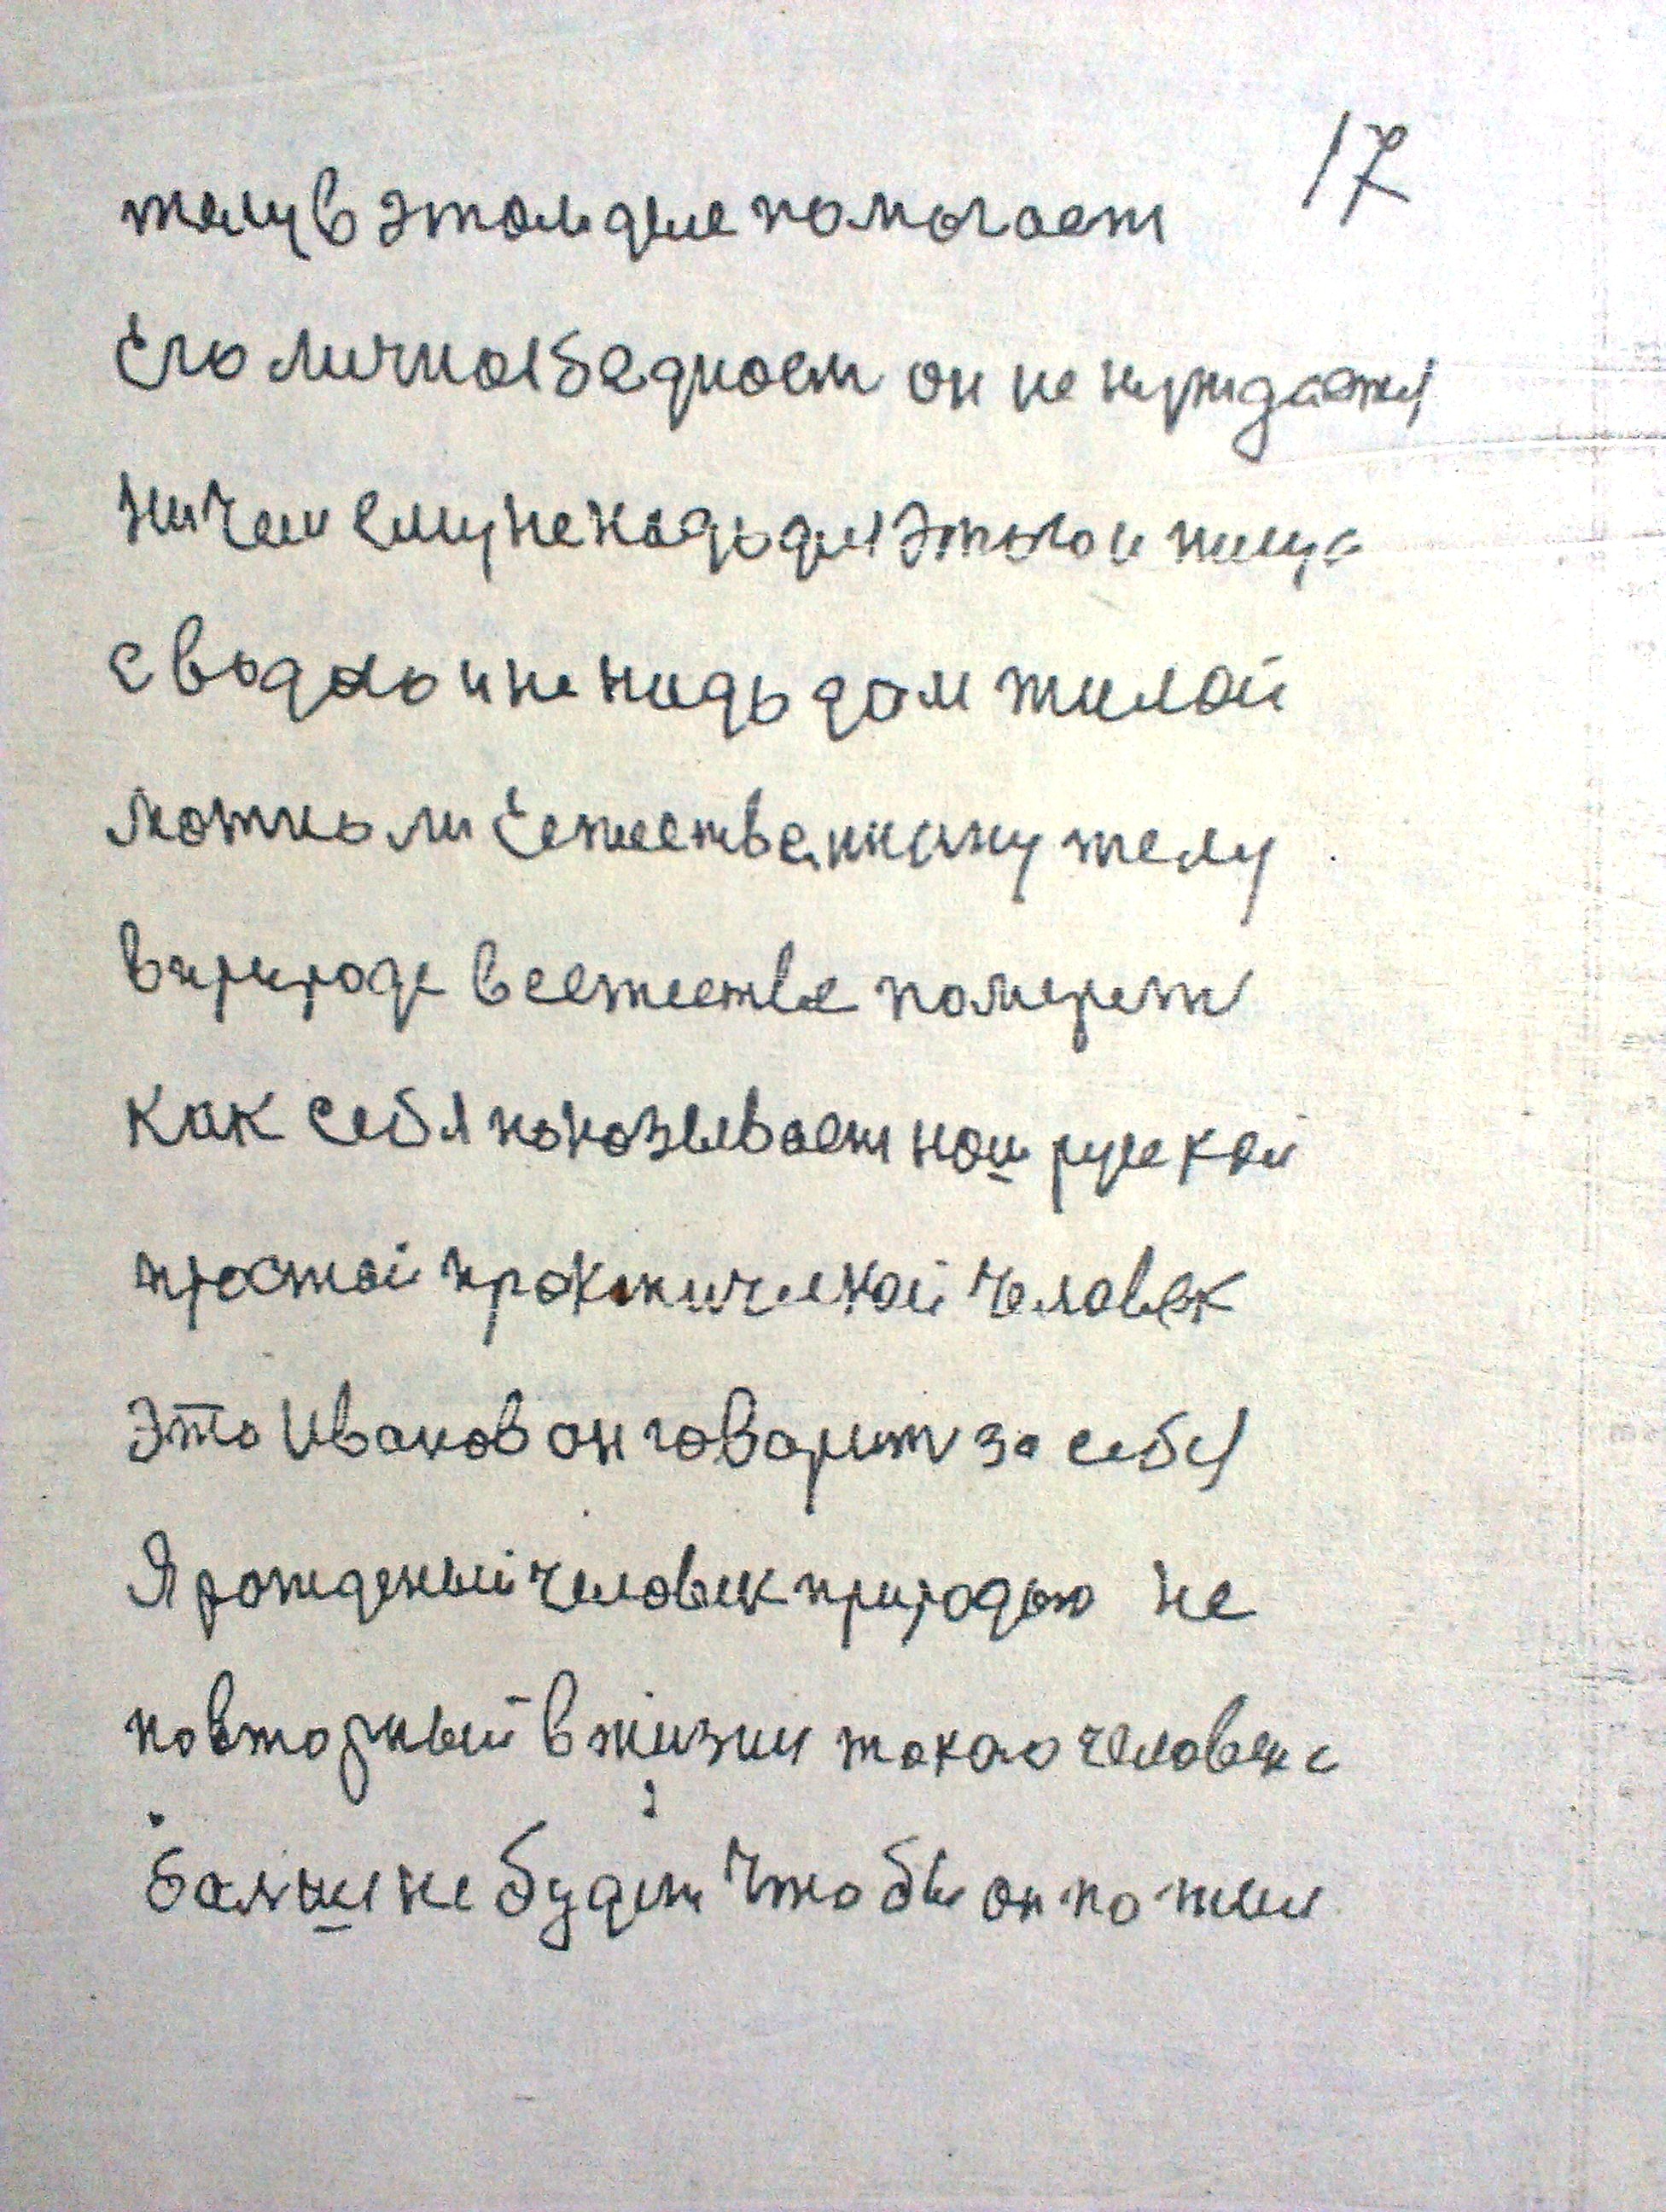 17
телу в этом деле помогает
Его личная бедност он не нуждается
ничем ему не надо для этого и пища
с водою и не надо дом жилой
можно ли Естественнаму телу
в природе в естестве померет
как себя показывает наш руской
простой практической человек
Это Иванов он говарит за себя
Я рожденый человек природою не
повторный в жизни такого человека
болши не будет чтобы он пожил